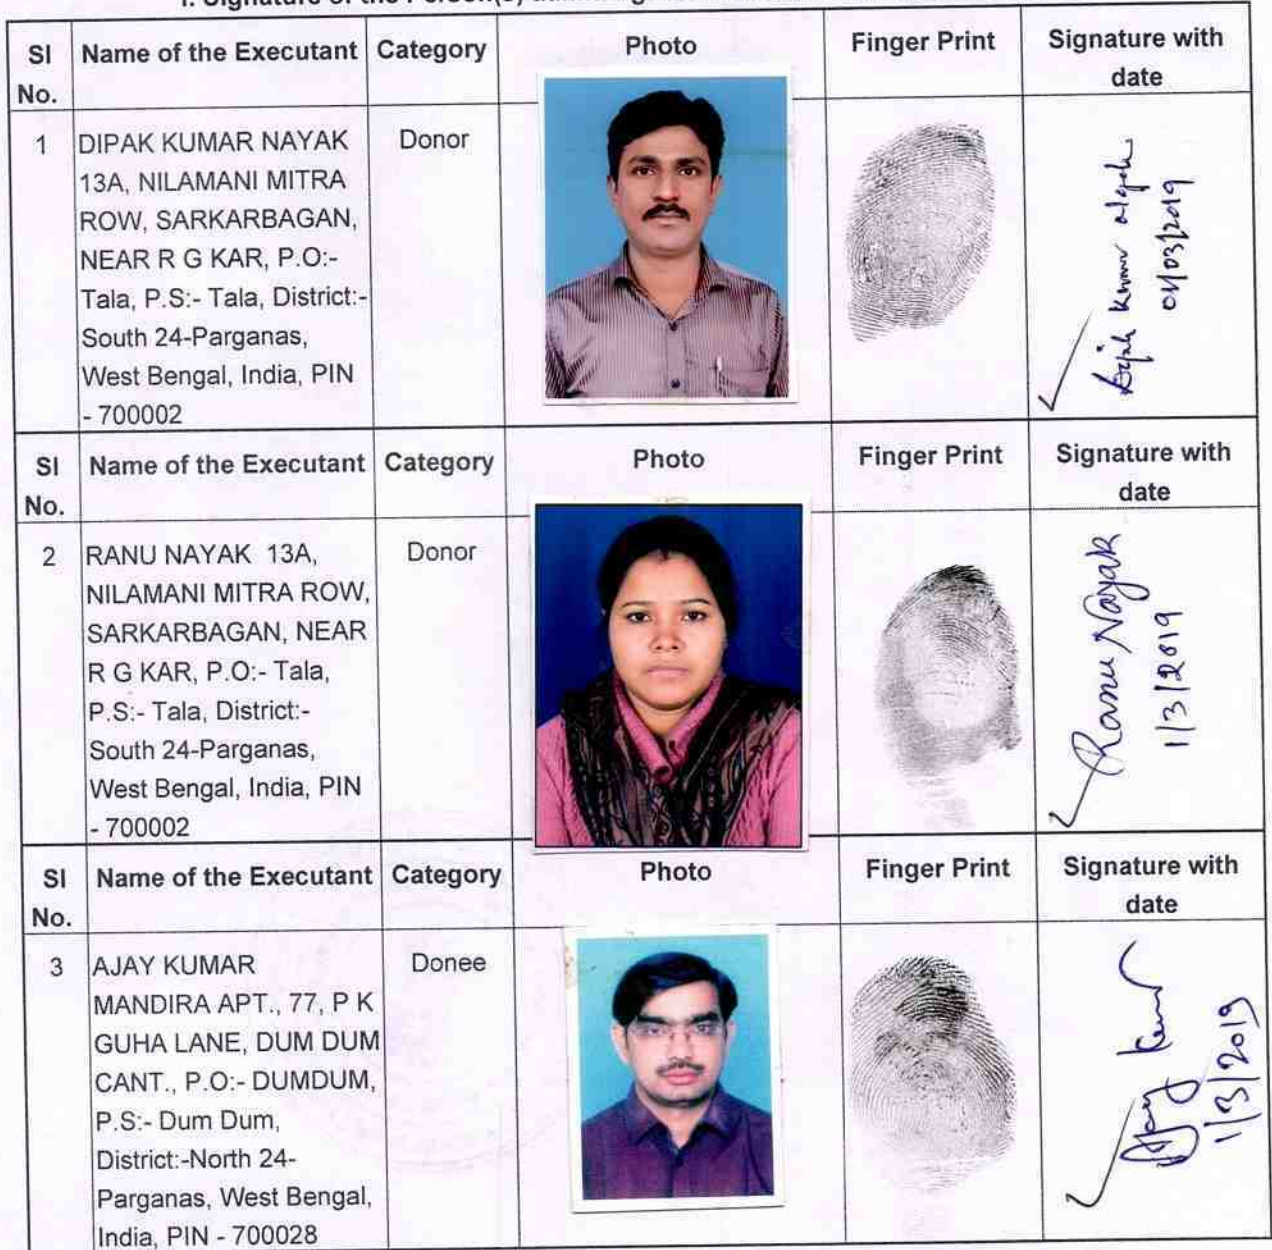 SI No. Name of the Executant Category Photo Finger Print Signature with date
1 DIPAK KUMAR NAYAK Donor
13A, NILAMANI MITRA
ROW, SARKARBAGAN,
NEAR R G KAR, P.O:-
Tala, P.S:- Tala, District:-
South 24-Parganas,
West Bengal, India, PIN
- 700002
01/03/2019
SI No. Name of the Executant Category Photo Finger Print Signature with date
2 RANU NAYAK 13A, Donor
NILAMANI MITRA ROW,
SARKARBAGAN, NEAR
R G KAR, P.O:- Tala,
P.S:- Tala, District:-
South 24-Parganas,
West Bengal, India, PIN
- 700002
Ranu Nayak
1/3/2019
SI No. Name of the Executant Category Photo Finger Print Signature with date
3 AJAY KUMAR Donee
MANDIRA APT., 77, P K
GUHA LANE, DUM DUM
CANT., P.O:- DUMDUM,
P.S:- Dum Dum,
District:-North 24-
Parganas, West Bengal,
India, PIN - 700028
Ajay Kumar
1/3/2019